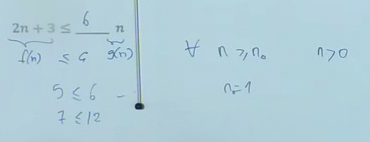 2n + 3 ≤ 6 n
f(n) ≤ c g(n) ∀ n ≥ n₀ n > 0
5 ≤ 6 n₀ = 1
7 ≤ 12